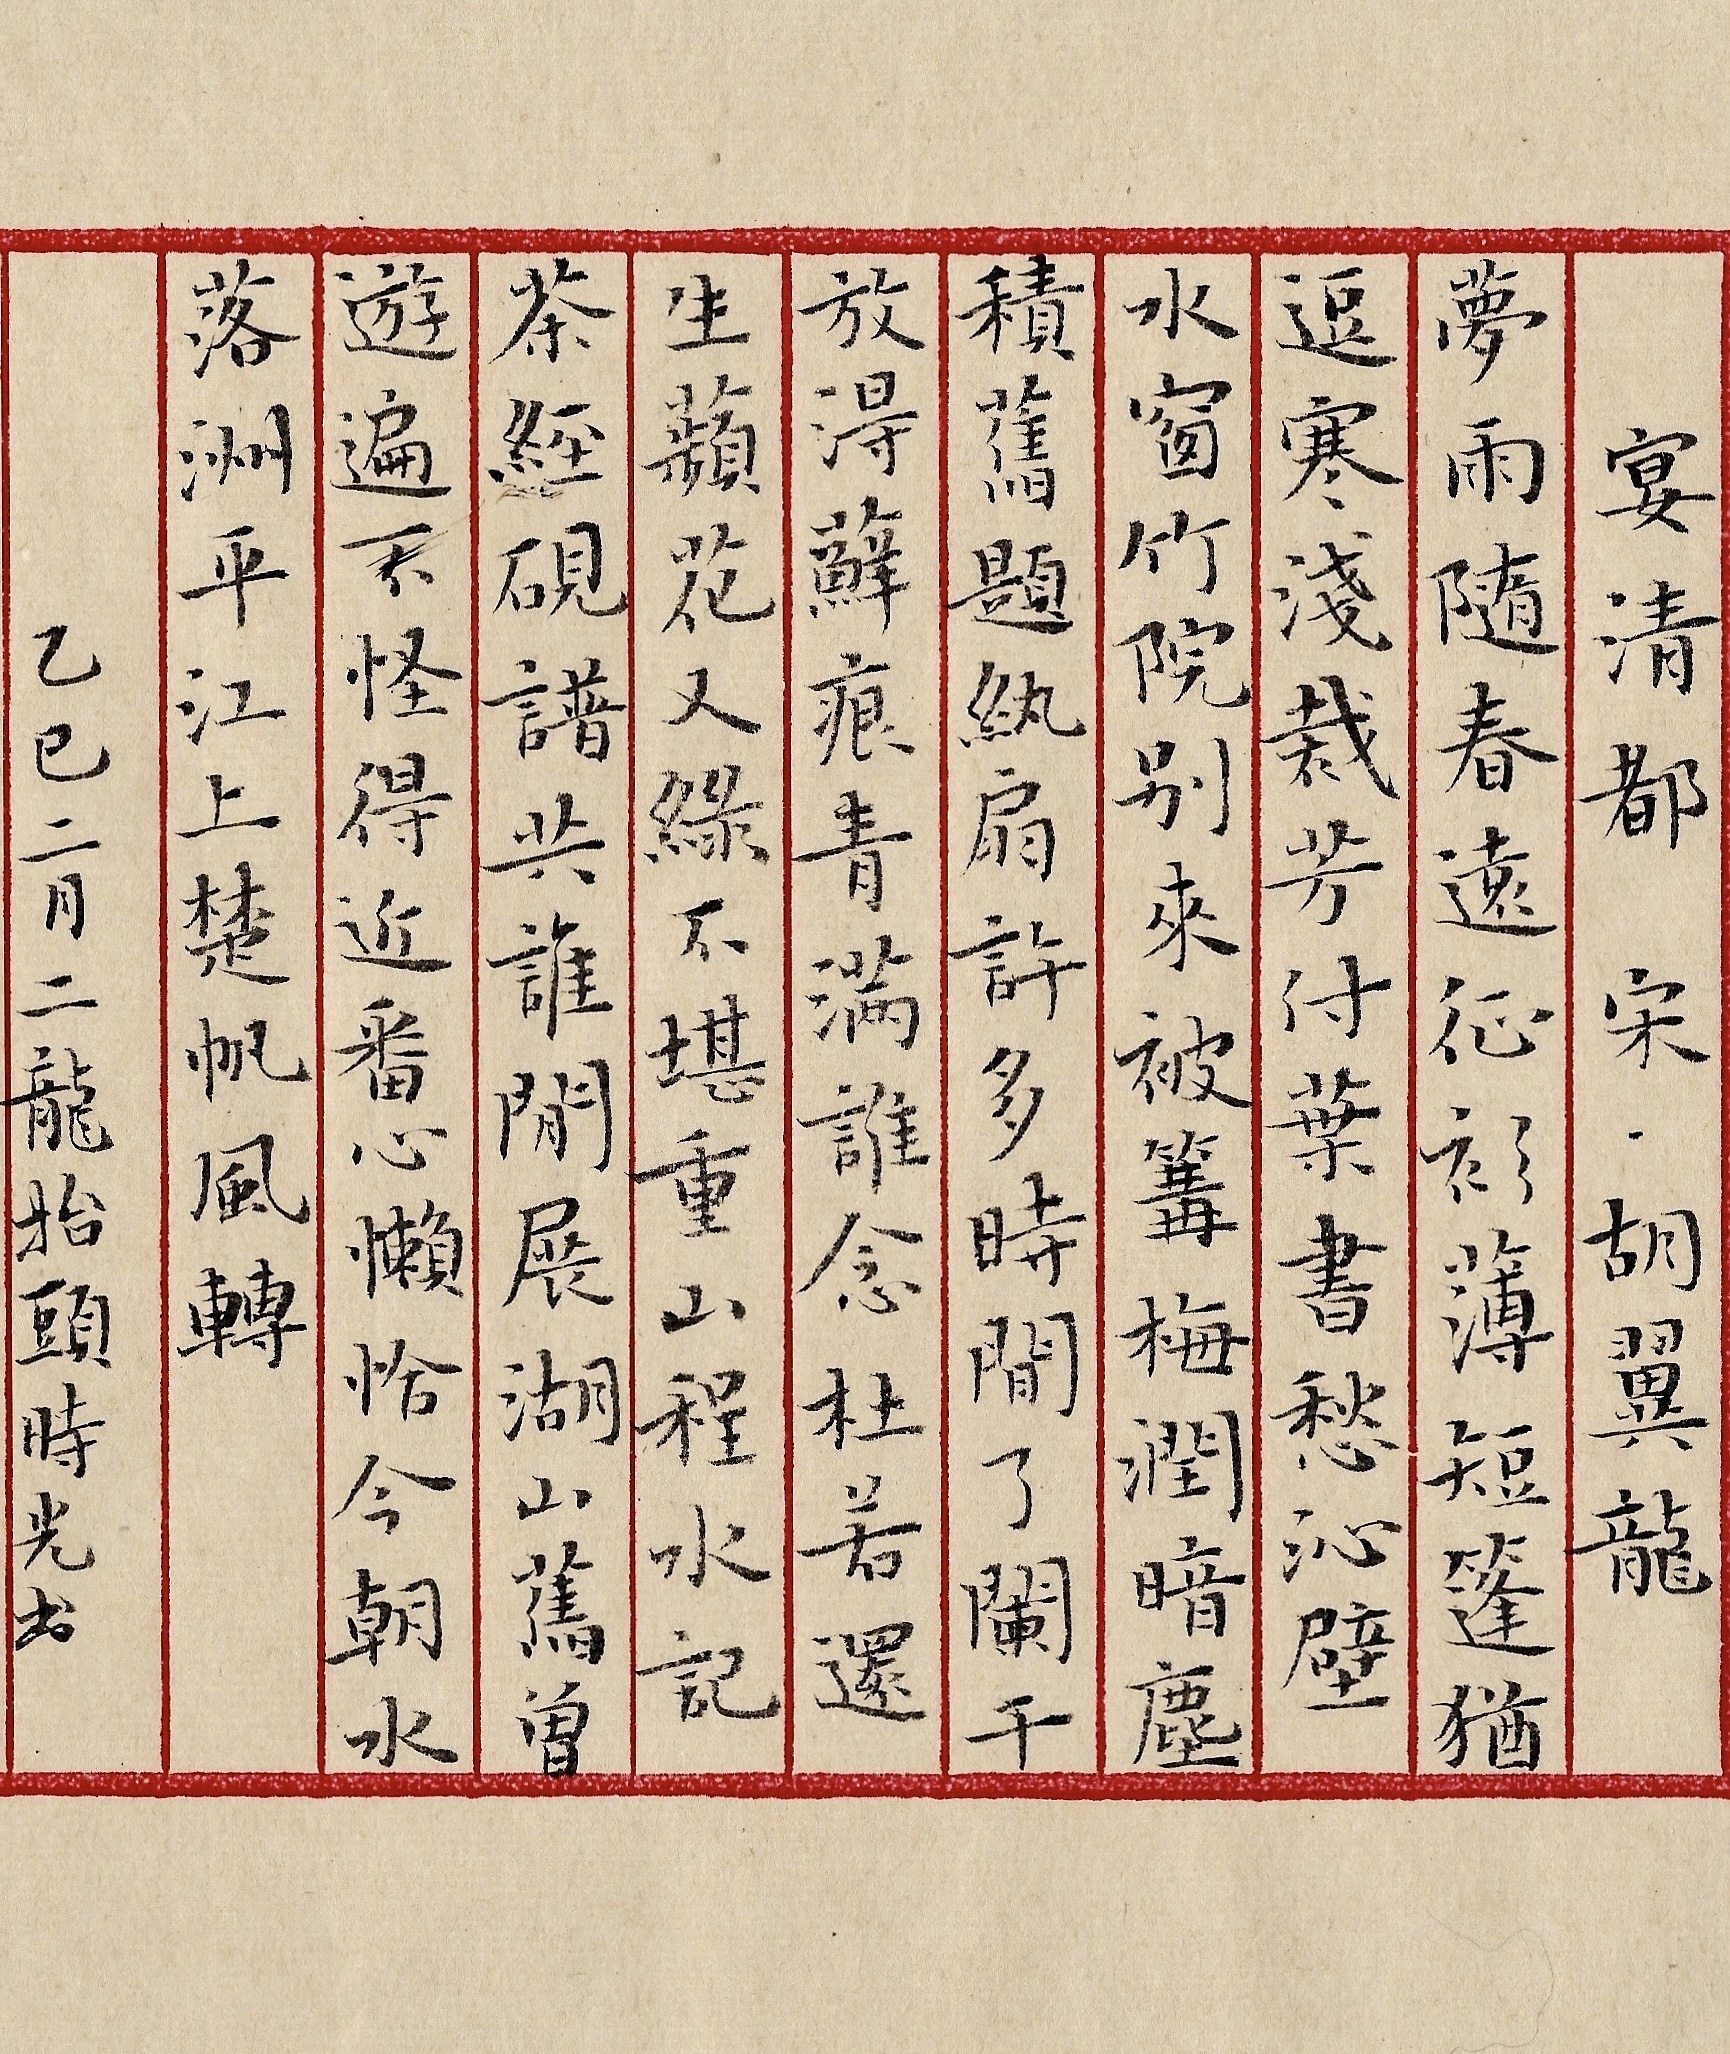 宴清都 宋·胡翼龍
夢雨隨春遠征衫薄短篷猶
逗寒淺裁芳付葉書愁沁壁
水窗竹院別來被篝梅潤暗塵
積舊題紈扇許多時閒了闌干
放得蘚痕青滿誰念杜若還
生蘋花又綠不堪重山程水記
茶經硯譜共誰閒展湖山舊曾
遊遍不怪得近番心懶恰今朝水
落洲平江上楚帆風轉
乙巳二月二龍抬頭時光书